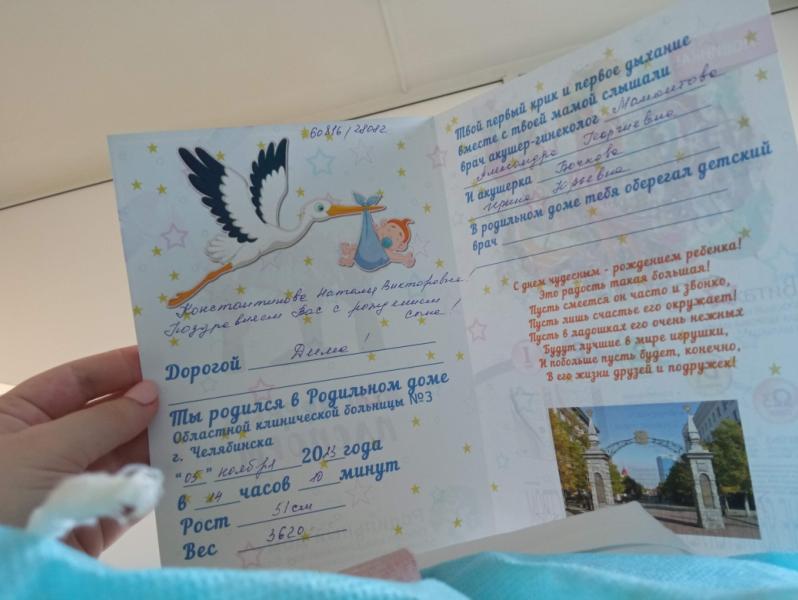 60816/28082
Константинова Наталья Викторовна!
Поздравляем Вас с рождением
сына!
Дорогой Дима!
Ты родился в Родильном доме
Областной клинической больницы №3
г. Челябинска
"05" ноября 2023 года
в 14 часов 10 минут
Рост 51 см
Вес 3620
Твой первый крик и первое дыхание
вместе с твоей мамой слышали
врач акушер-гинеколог Мамонтова
Александра Георгиевна
И акушерка Бочкова
Ирина Юрьевна
В родильном доме тебя оберегал детский
врач
С днем чудесным - рождением ребенка!
Это радость такая большая!
Пусть смеется он часто и звонко,
Пусть лишь счастье его окружает!
Пусть в ладошках его очень нежных
Будут лучшие в мире игрушки,
И побольше пусть будет, конечно,
В его жизни друзей и подружек!